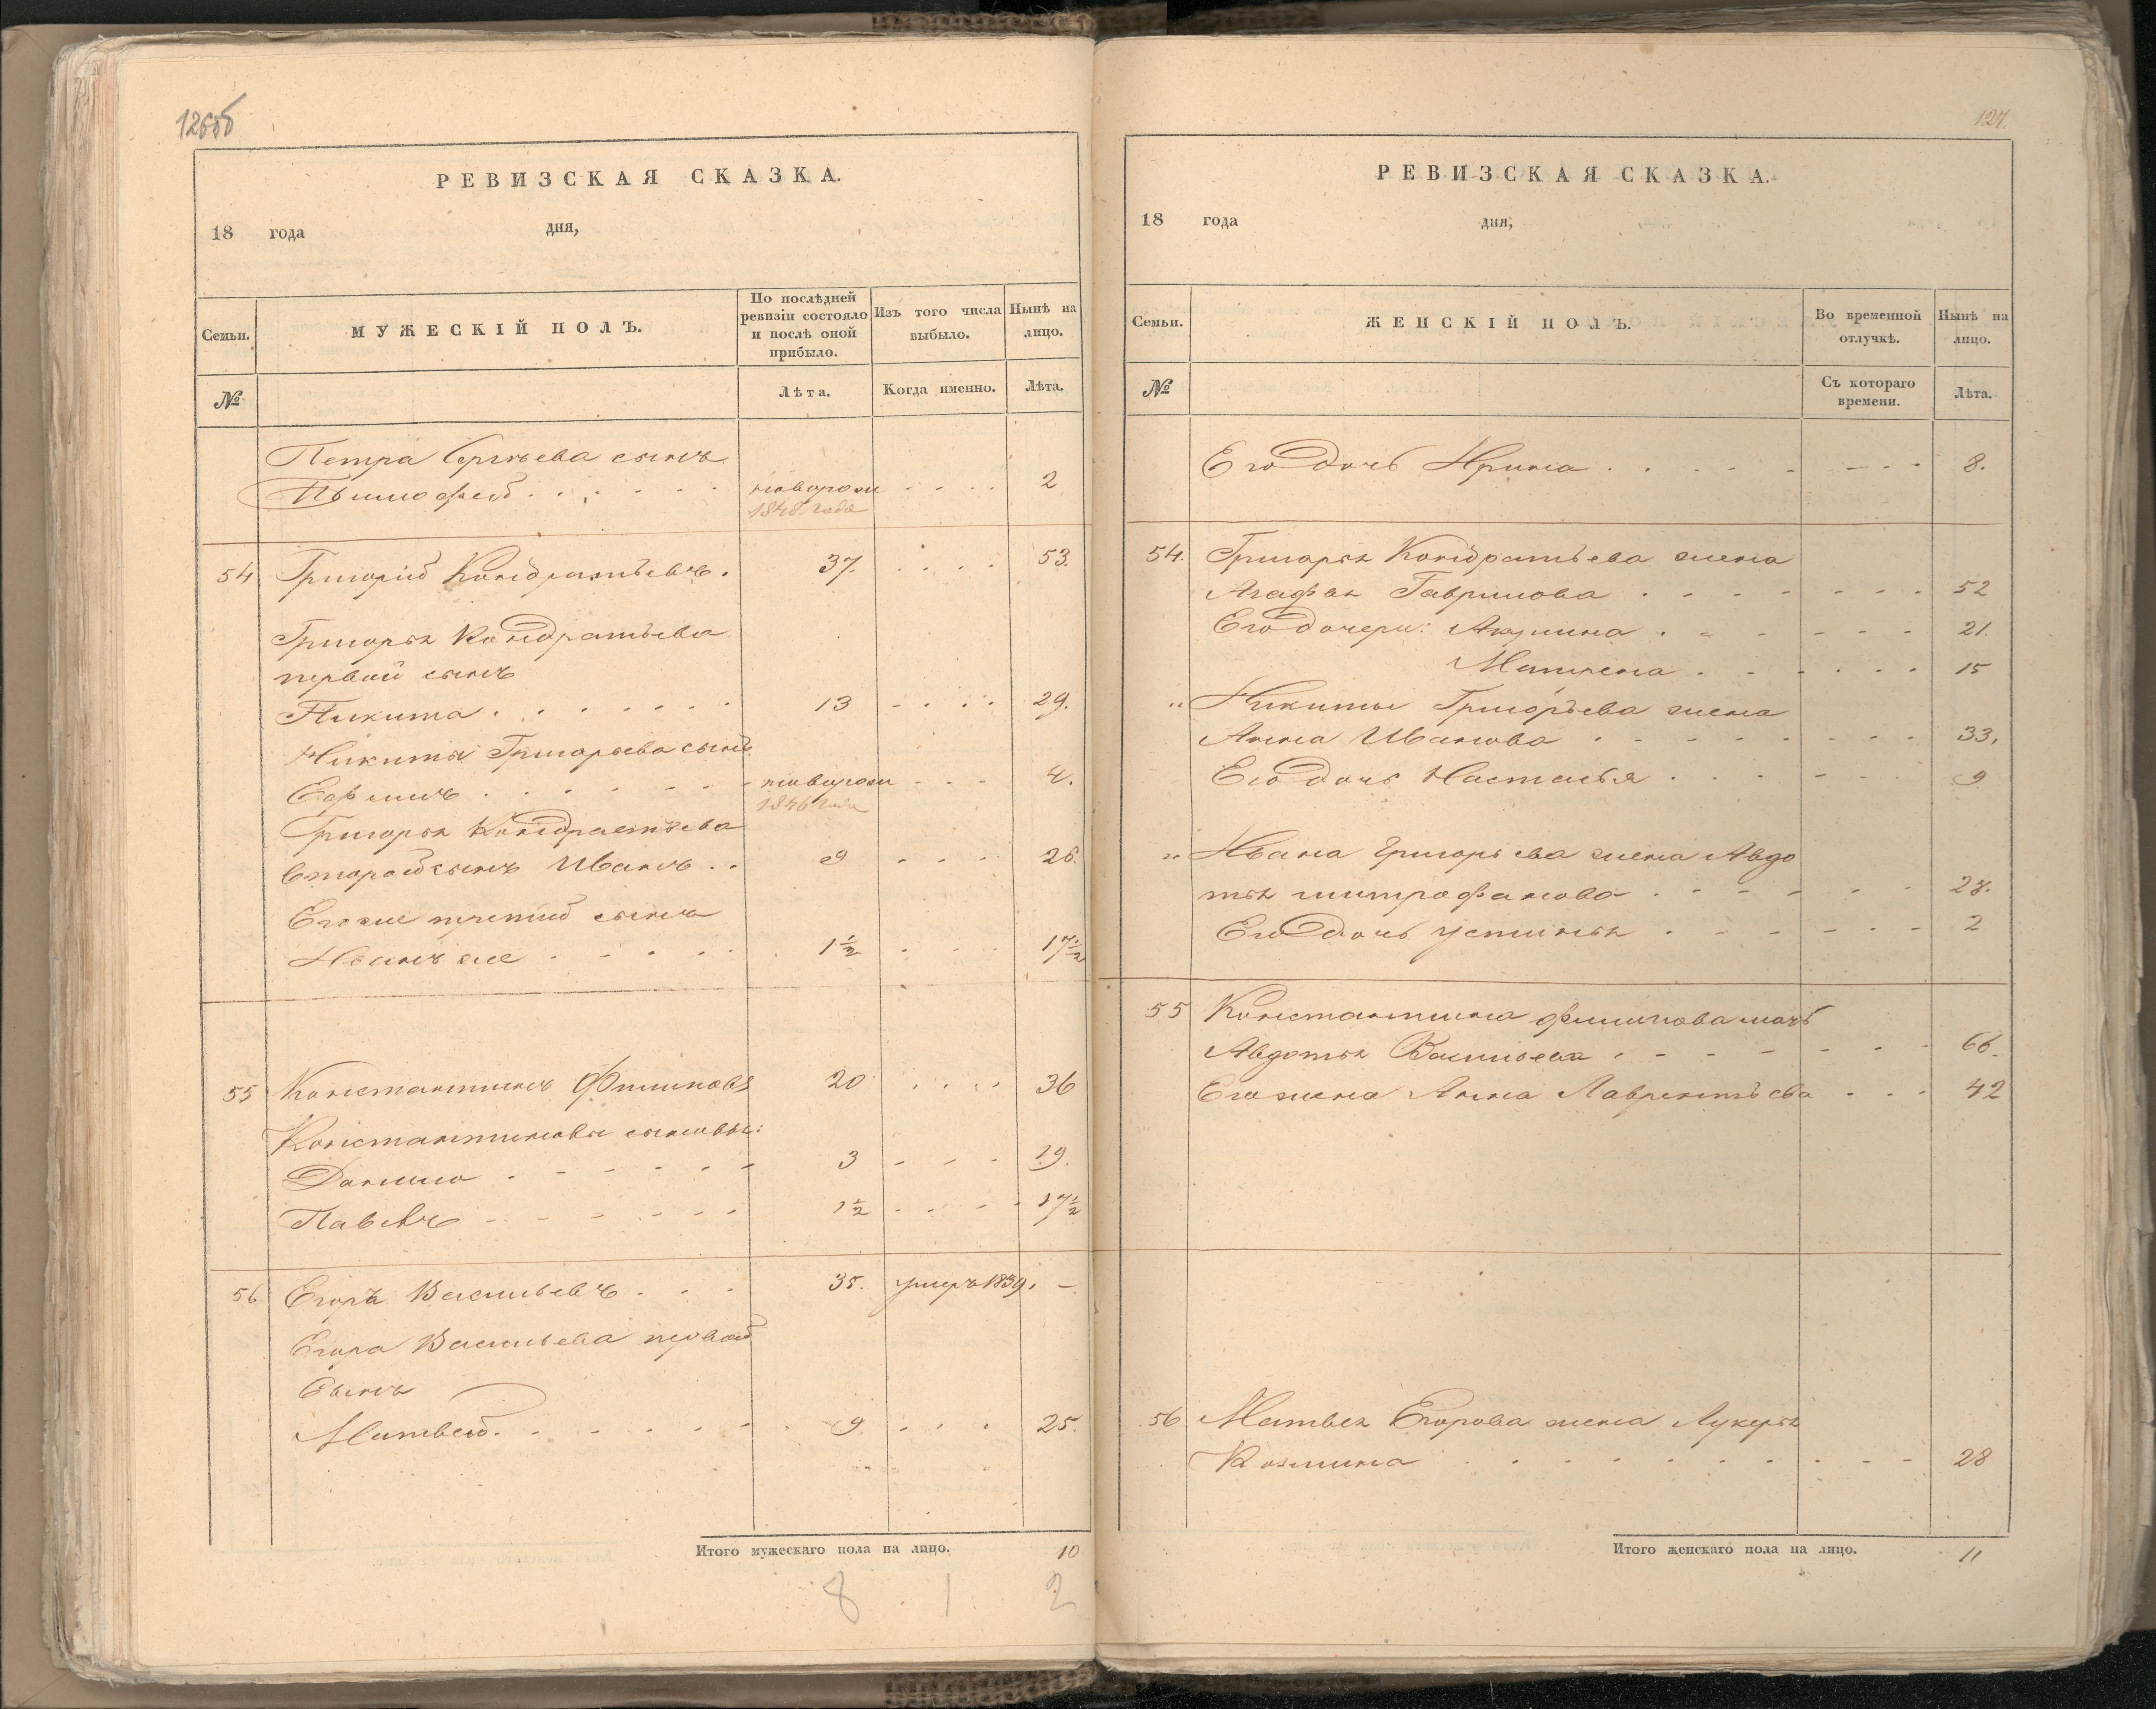 126об
РЕВИЗСКАЯ СКАЗКА.
18 года дня,
Семьи. МУЖЕСКІЙ ПОЛЪ. По послѣдней ревизіи состояло и послѣ оной прибыло. Изъ того числа выбыло. Нынѣ на лицо.
№ Лѣта. Когда именно. Лѣта.
Петра Сергѣева сынъ
новорож 2
1848 года
54 Григорій Кондратьевъ. 37. 53.
Григорья Кондратьева
первой сынъ
Никита 13 29.
Никиты Григорьева сынъ
Ефимъ новорож 4.
1846 года
Григорья Кондратьева
второй сынъ Иванъ 9 26.
Егоже третий сынъ
Иванъ же 1½ 17½
55 Константинъ Филиповъ 20 36
Константиновы сыновья:
Данило 3 19.
Павелъ 1½ 17½
56 Егоръ Васильевъ 35. умеръ 1839. –
Егора Васильева первой
сынъ
Матвей 9 25.
Итого мужескаго пола на лицо. 10
8 1 2
127.
РЕВИЗСКАЯ СКАЗКА.
18 года дня,
Семьи. ЖЕНСКІЙ ПОЛЪ. Во временной отлучкѣ. Нынѣ на лицо.
№ Съ котораго времени. Лѣта.
Его дочь Ирина 8.
54. Григорья Кондратьева жена
Агафья Гаврилова 52
Его дочери: Акулина 21.
Матрена 15
" Никиты Григорьева жена
Анна Иванова 33.
Его дочь Настасья 9
" Ивана Григорьева жена Авдо
тья митрофанова 27.
Его дочь устинья 2
55 Константина филипова мать
Авдотья Васильева 66.
Его жена Анна Лаврентьева 42
56 Матвея Егорова жена Лукерья
Козмина 28
Итого женскаго пола на лицо. 11